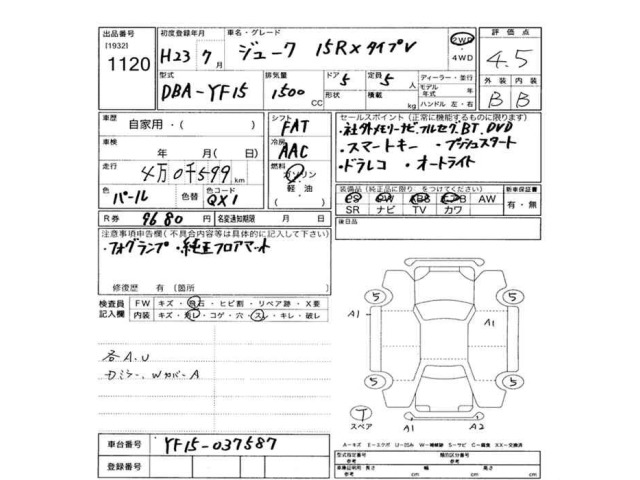 出品番号
[1932]
1120
初度登録年月
H23 7月
車名・グレード
ジューク 15RXタイプV
2WD・4WD
評価点
4.5
外装 内装
B B
型式
DBA-YF15
排気量
1500 CC
ドア 5
形状
定員 5 人
積載 kg
ディーラー・並行
モデル年式 年
ハンドル 左・右
車歴
自家用・( )
シフト
FAT
車検
年 月( 日)
冷房
AAC
走行
4万0千599 km
燃料
ガソリン
軽油
( )
色
パール
色替
色コード
QX1
R券 9680 円
名変通知期限 月 日
セールスポイント(正常に機能するものに限ります)
・社外メモリーナビ.フルセグ.BT.DVD
・スマートキー ・プッシュスタート
・ドラレコ ・オートライト
装備品(純正品に限り○をつけてください)
新車保証書
有・無
AW
SR ナビ TV カワ
後日品
注意事項申告欄(不具合内容等は具体的に記入して下さい)
・フォグランプ ・純正フロアマット
修復歴 有(箇所 )
検査員記入欄
FW キズ・飛石・ヒビ割・リペア跡・X要
内装 キズ・汚レ・コゲ・穴・スレ・キレ・破レ
各A.U
カミラー、WカバーA
車台番号 YF15-037587
登録番号
5 5
A1 A1
5 5
T
スペア
A1 A2
A-キズ E-エクボ U-凹み W-補修跡 S-サビ C-腐食 XX-交換済
型式指定番号
参考
類別区分番号
参考
車庫証明用 長さ
参考
cm
幅
cm
高さ
cm